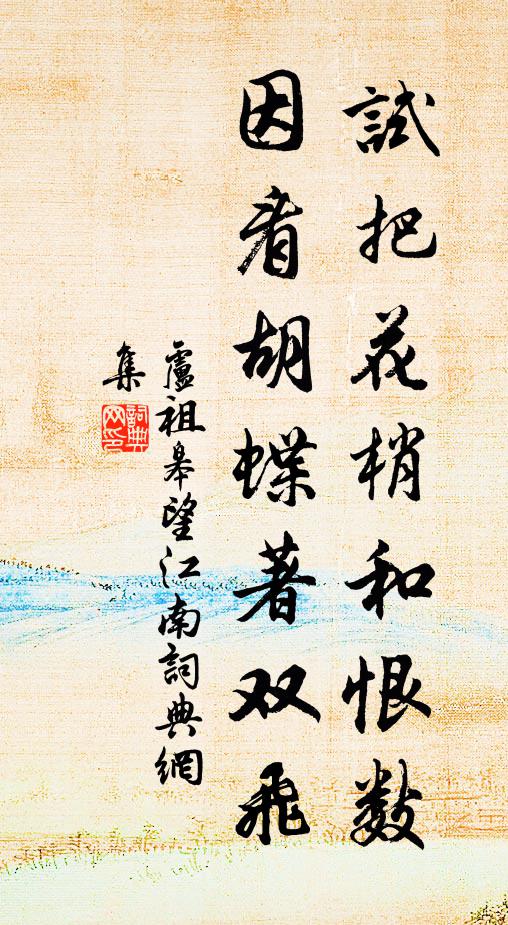 試把花梢和恨數
因看胡蝶著双飛
盧祖皋望江南詞典網
集
詞典
网印